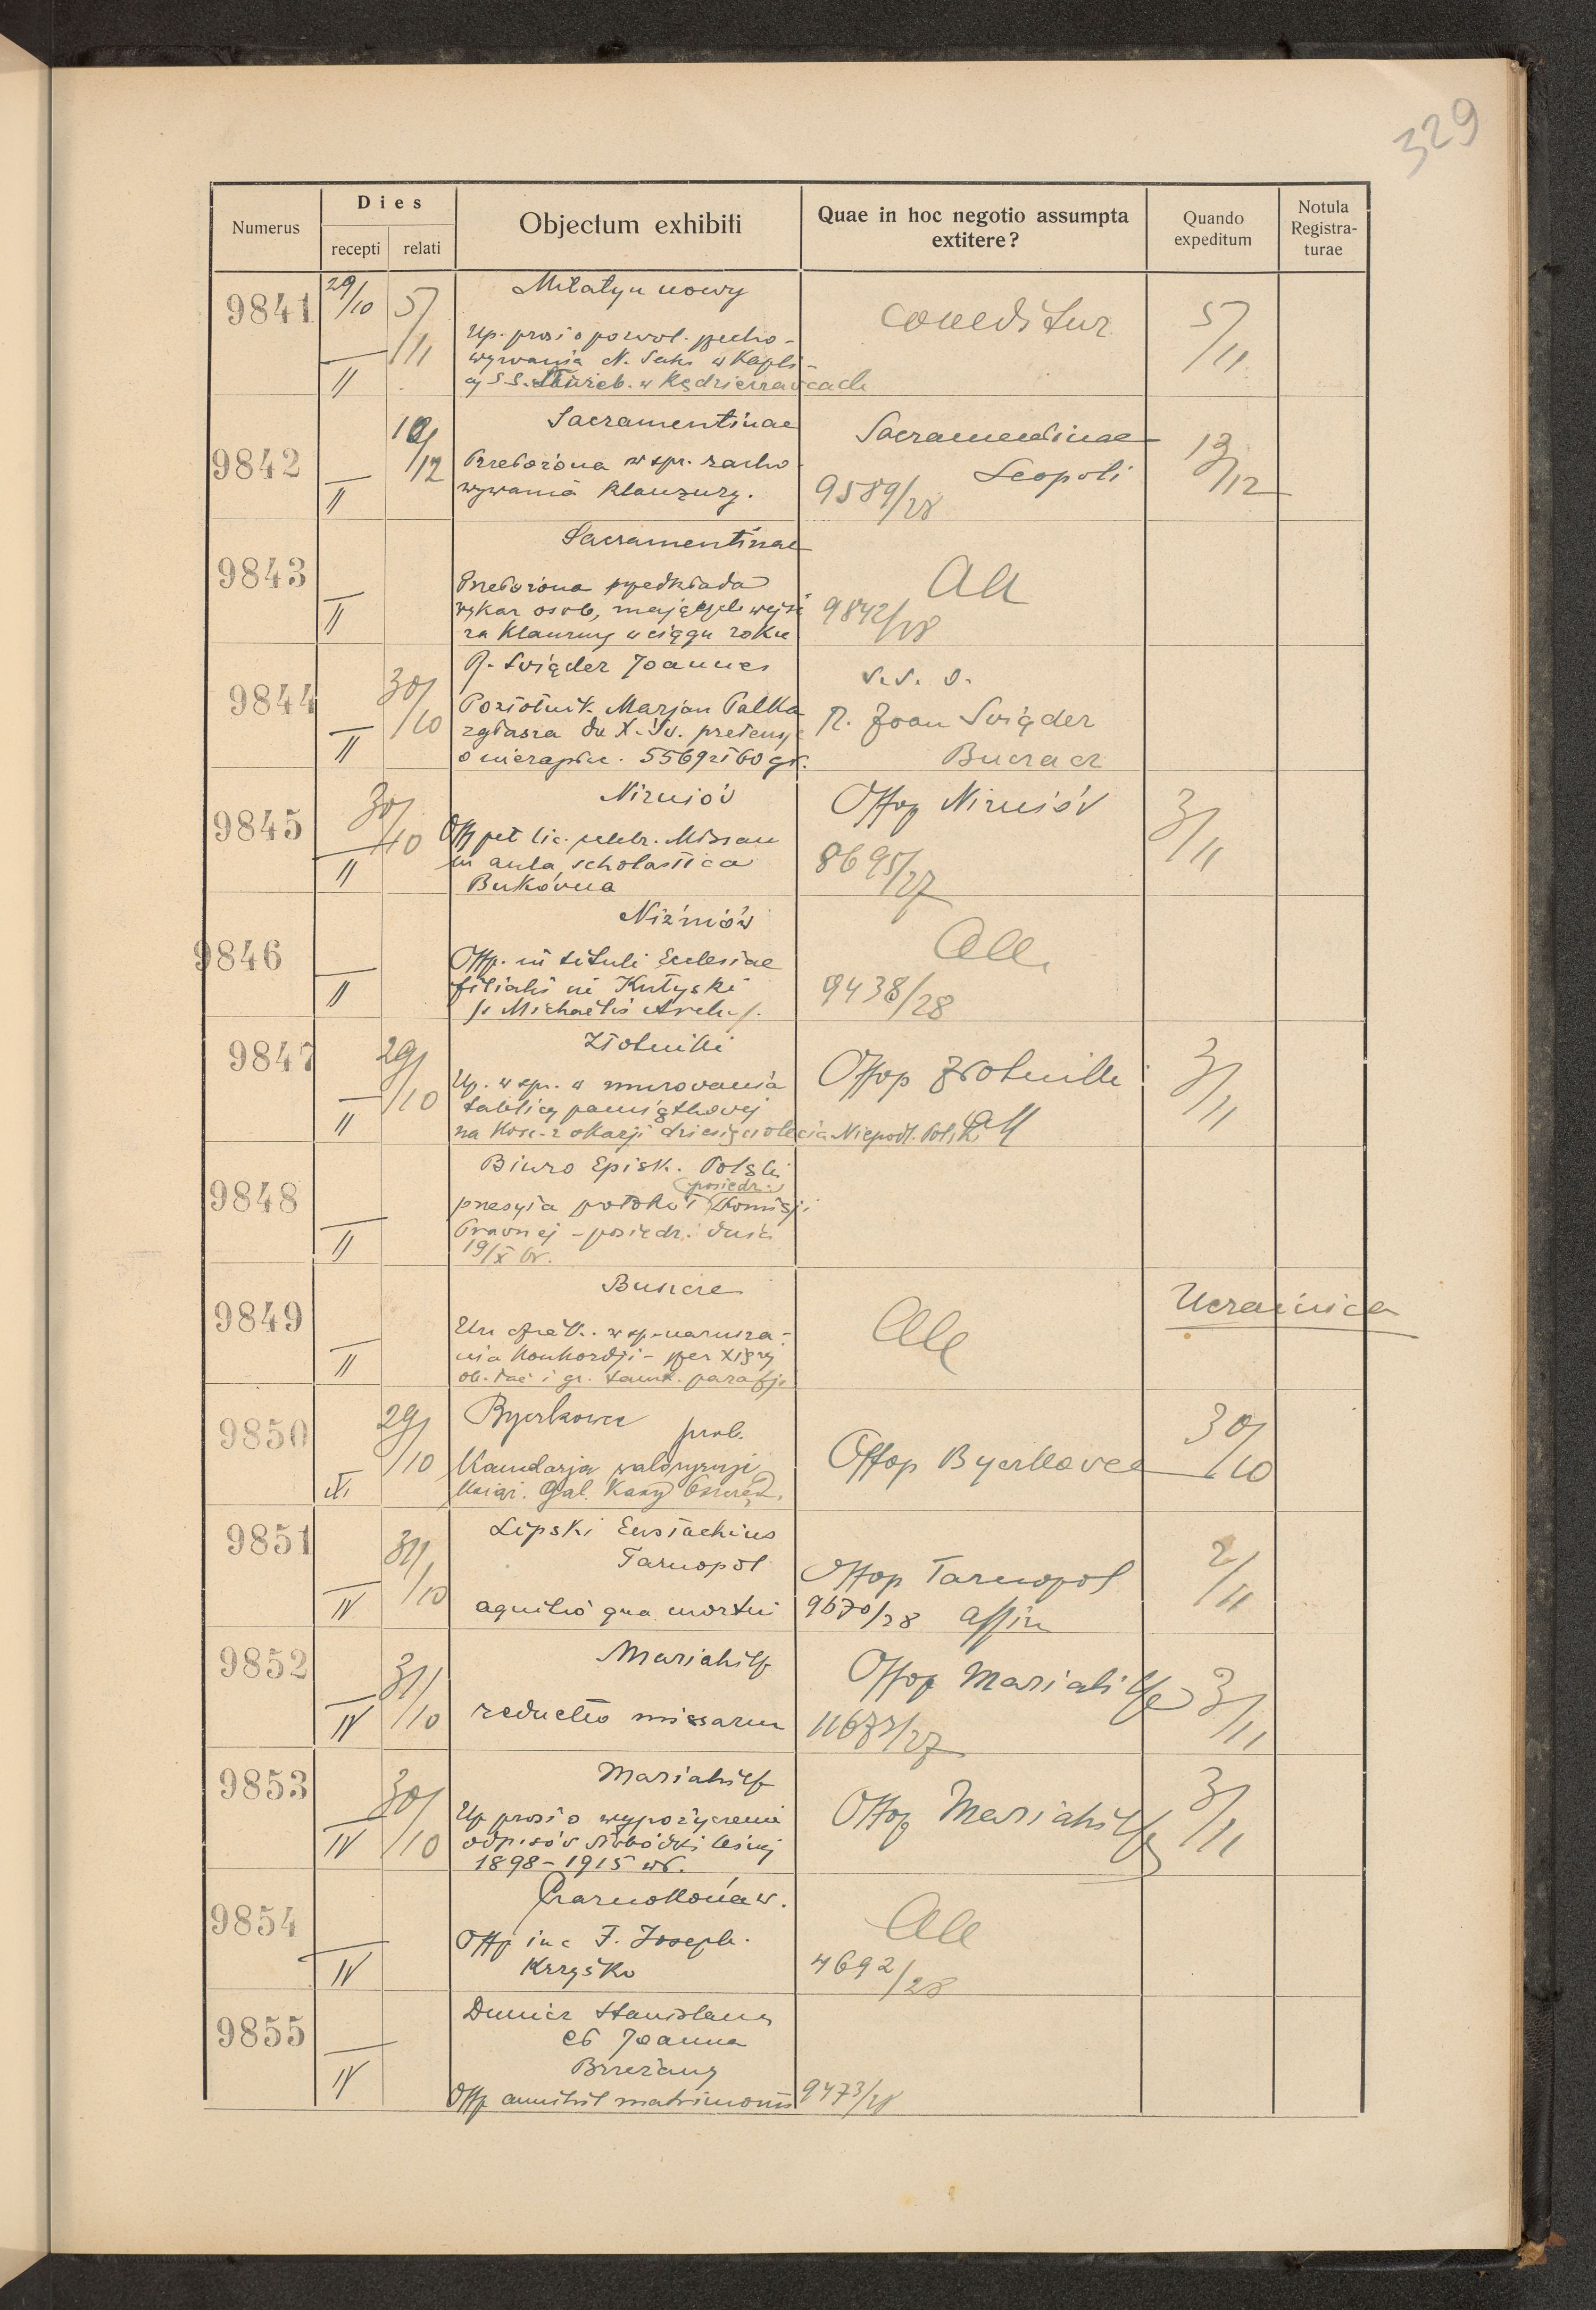 329
Numerus
Dies
recepti
relati
Objectum exhibiti
Quae in hoc negotio assumpta extitere?
Quando expeditum
Notula Registra-turae
9841
29/10
II
5/11
Miłatyn nowy
Up. prosi o powol. przecho-
wywania N. Sakr. w Kapli-
cy S.S. w Kędzierzawcach
conceditur
5/11
9842
II
12/12
Sacramentinae
Przełożona w spr. zacho-
wywania Klauzury.
Sacramentinae
Leopoli
9589/28
13/12
9843
II
Sacramentinae
Przełożona przedkłada
wykaz osób, mających wejść
za Klauzurę w ciągu roku
Aa
9842/28
9844
II
30/10
P. Świąder Joannes
Pozłotnik Marjan Pałka
zgłasza do X. Św. pretensje
o niezapłac. 5569 zł 60 gr.
s.s. o.
R. Joan Świąder
Buczacz
9845
II
30/10
Niżniów
Offp pet lic. celebr. Missam
in aula scholastica
Bukówna
Offop Niżniów
8695/27
3/11
9846
II
Niżniów
Offp. in tituli Ecclesiae
filialis in Kutyski
s. Michaelis Arch.
Aa
9438/28
9847
II
29/10
Złotniki
Up. w spr. wmurowania
tablicy pamiątkowej
na Kośc. z okazji dziesięciolecia Niepodl. Polski
Offop Złotniki
3/11
9848
II
Biuro Episk. Polski
przesyła protokół posiedz. Komisji
Prawnej - posiedz. dnia
19/X br.
9849
II
Buszcze
w sp. narusza-
nia Konkordji - przez Xięży
ob. łac i gr.
Aa
Ucrainica
9850
IV
29/10
Byczkowce
prob.
waloryzacji
Gal. Kasy Oszczęd.
Offop Byczkovce
30/10
9851
IV
31/10
Lipski Eustachius
Tarnopol
agnitio qua mortui
Offop Tarnopol
9670/28 affirm
2/11
9852
IV
31/10
Mariahilf
reductio missarum
Offop Mariahilf
11677/27
3/11
9853
IV
30/10
Mariahilf
Up prosi o wypożyczenie
odpisów Słobódki leśnej
1898-1915 wł.
Offop Mariahilf
3/11
9854
IV
Czarnokońce w.
Offp in c F. Joseph.
Krzyśko
Aa
4692/28
9855
IV
Dunicz Stanislaus
et Joanna
Brzeżany
Offp annihil matrimonii
9473/28